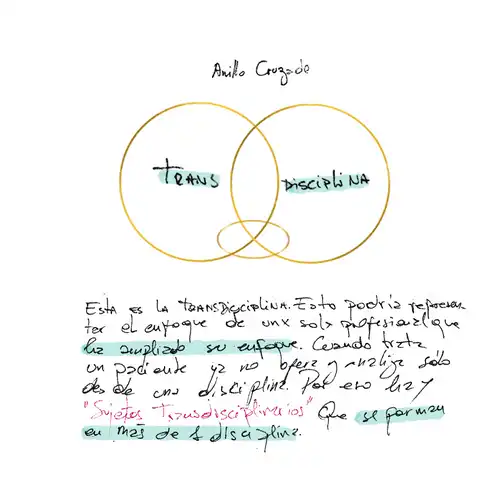 Anillo Cruzade
TRANS
DISCIPLINA
ESTA ES LA TRANSDISCIPLINA. Esto podría represen
tar el enfoque de unx solx profesional que
ha ampliado su enfoque. Cuando trata
un paciente ya no opera y analiza sólo
desde una disciplina. Por eso hay
"Sujetos Transdisciplinarios" Que se forman
en más de 1 disciplina.